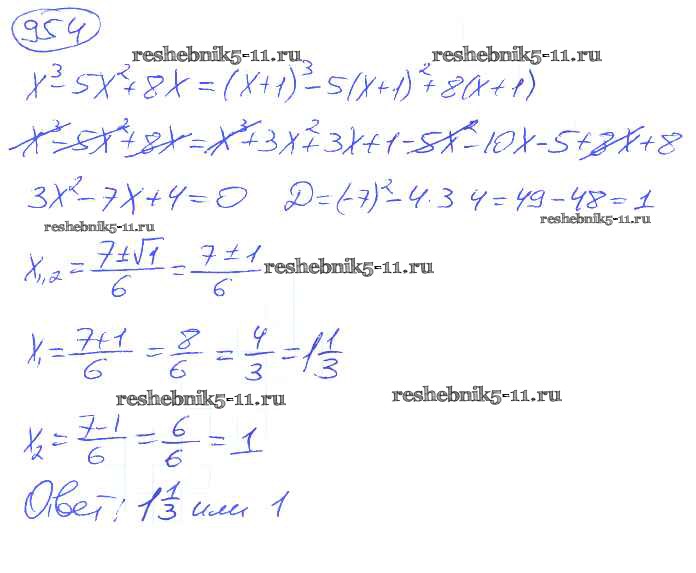 954
reshebnik5-11.ru reshebnik5-11.ru
x³-5x²+8x=(x+1)³-5(x+1)²+8(x+1)
x³-5x²+8x=x³+3x²+3x+1-5x²-10x-5+8x+8
3x²-7x+4=0 D=(-7)²-4·3 4=49-48=1
reshebnik5-11.ru reshebnik5-11.ru
x₁,₂=(7±√1)/6=(7±1)/6 reshebnik5-11.ru
x₁=(7+1)/6=8/6=4/3=1 1/3
reshebnik5-11.ru reshebnik5-11.ru
x₂=(7-1)/6=6/6=1
Ответ: 1 1/3 или 1